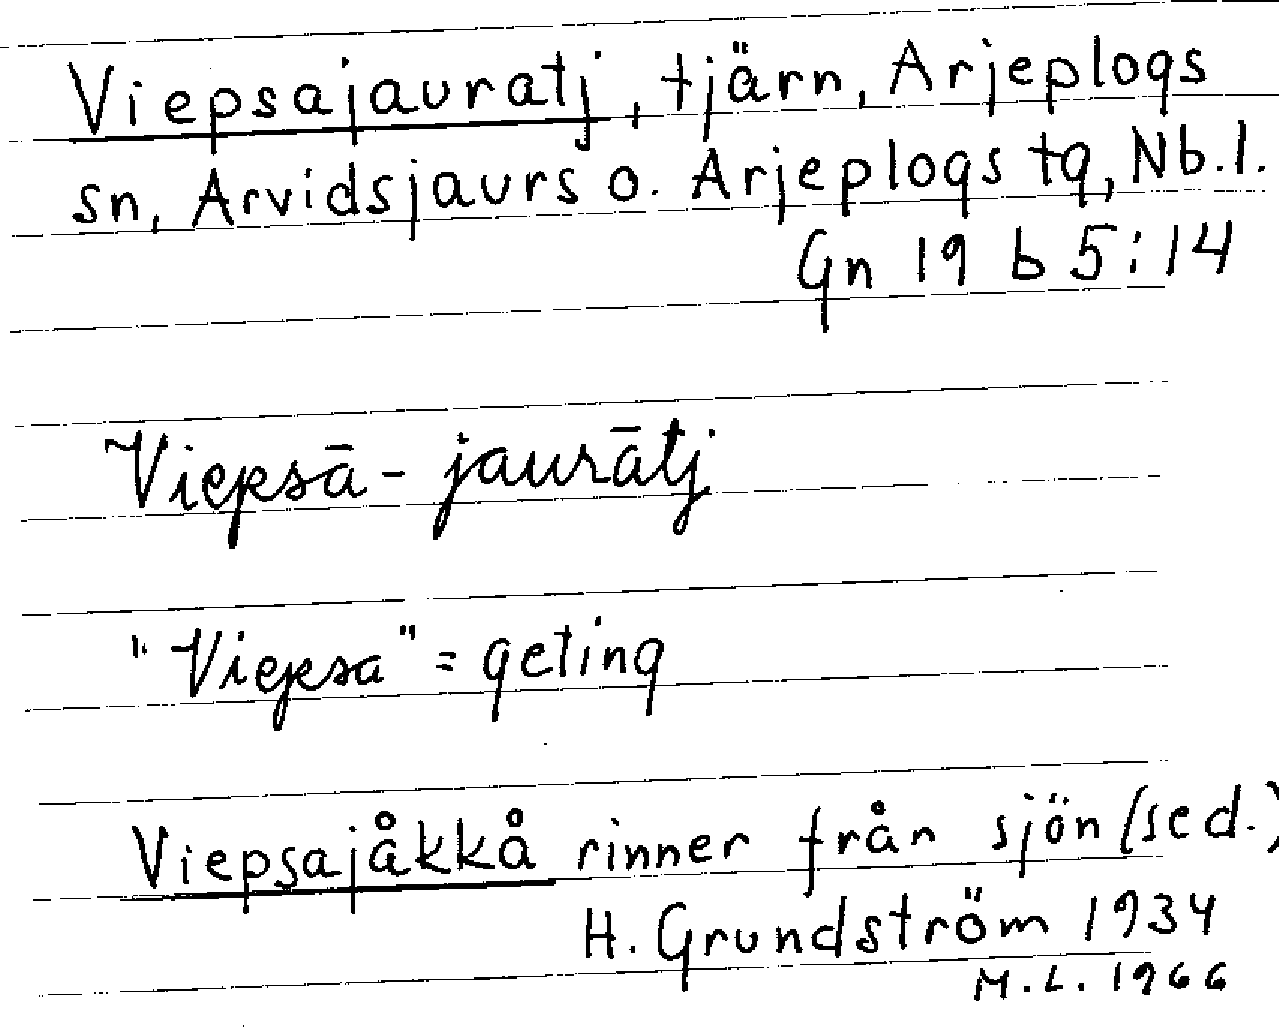 Viepsajauratj, tjärn, Arjeplogs
sn, Arvidsjaurs o. Arjeplogs tg, Nb.l.
Gn 19 b 5:14
Viepsā-jaurātj
"Viepsa" = geting
Viepsajåkkå rinner från sjön (sed.)
H. Grundström 1934
M.L. 1966